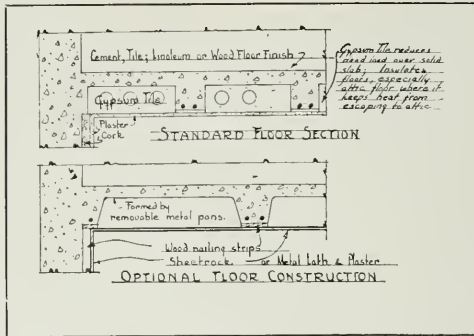 Cement, Tile; Linoleum or Wood Floor Finish
Gypsum Tile reduces
dead load over solid
slab; Insulates
floors, especially
attic floor where it
keeps heat from
escaping to attic
Gypsum Tile
Plaster
Cork
STANDARD FLOOR SECTION
Formed by
removable metal pans.
Wood nailing strips
Sheetrock or Metal Lath & Plaster
OPTIONAL FLOOR CONSTRUCTION